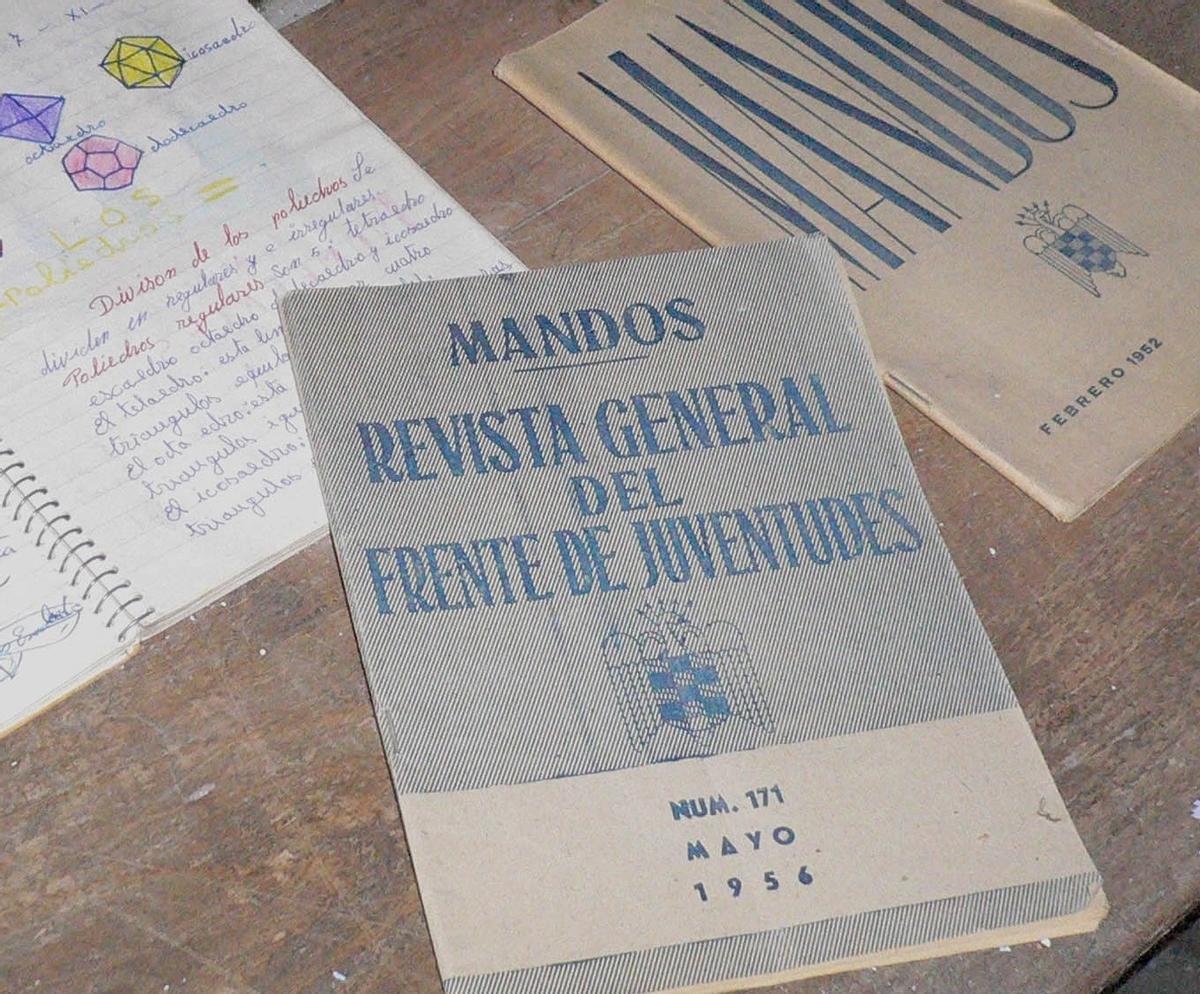 7 - XI -
icosaedro
octaedro
dodecaedro
LOS
Poliedros =
Divison de los poliedros Se
dividen en regulares y e irregulares.
Poliedros regulares Son 5: tetraedro
escaedro octaedro dodecaedro y icosaedro
El tetaedro: esta lim cuatro
triangulos equila
El octa edro: está
triangulos igu
El icosaedro:
triangulos
MANDOS
FEBRERO 1952
MANDOS
REVISTA GENERAL
DEL
FRENTE DE JUVENTUDES
NUM. 171
MAYO
1956